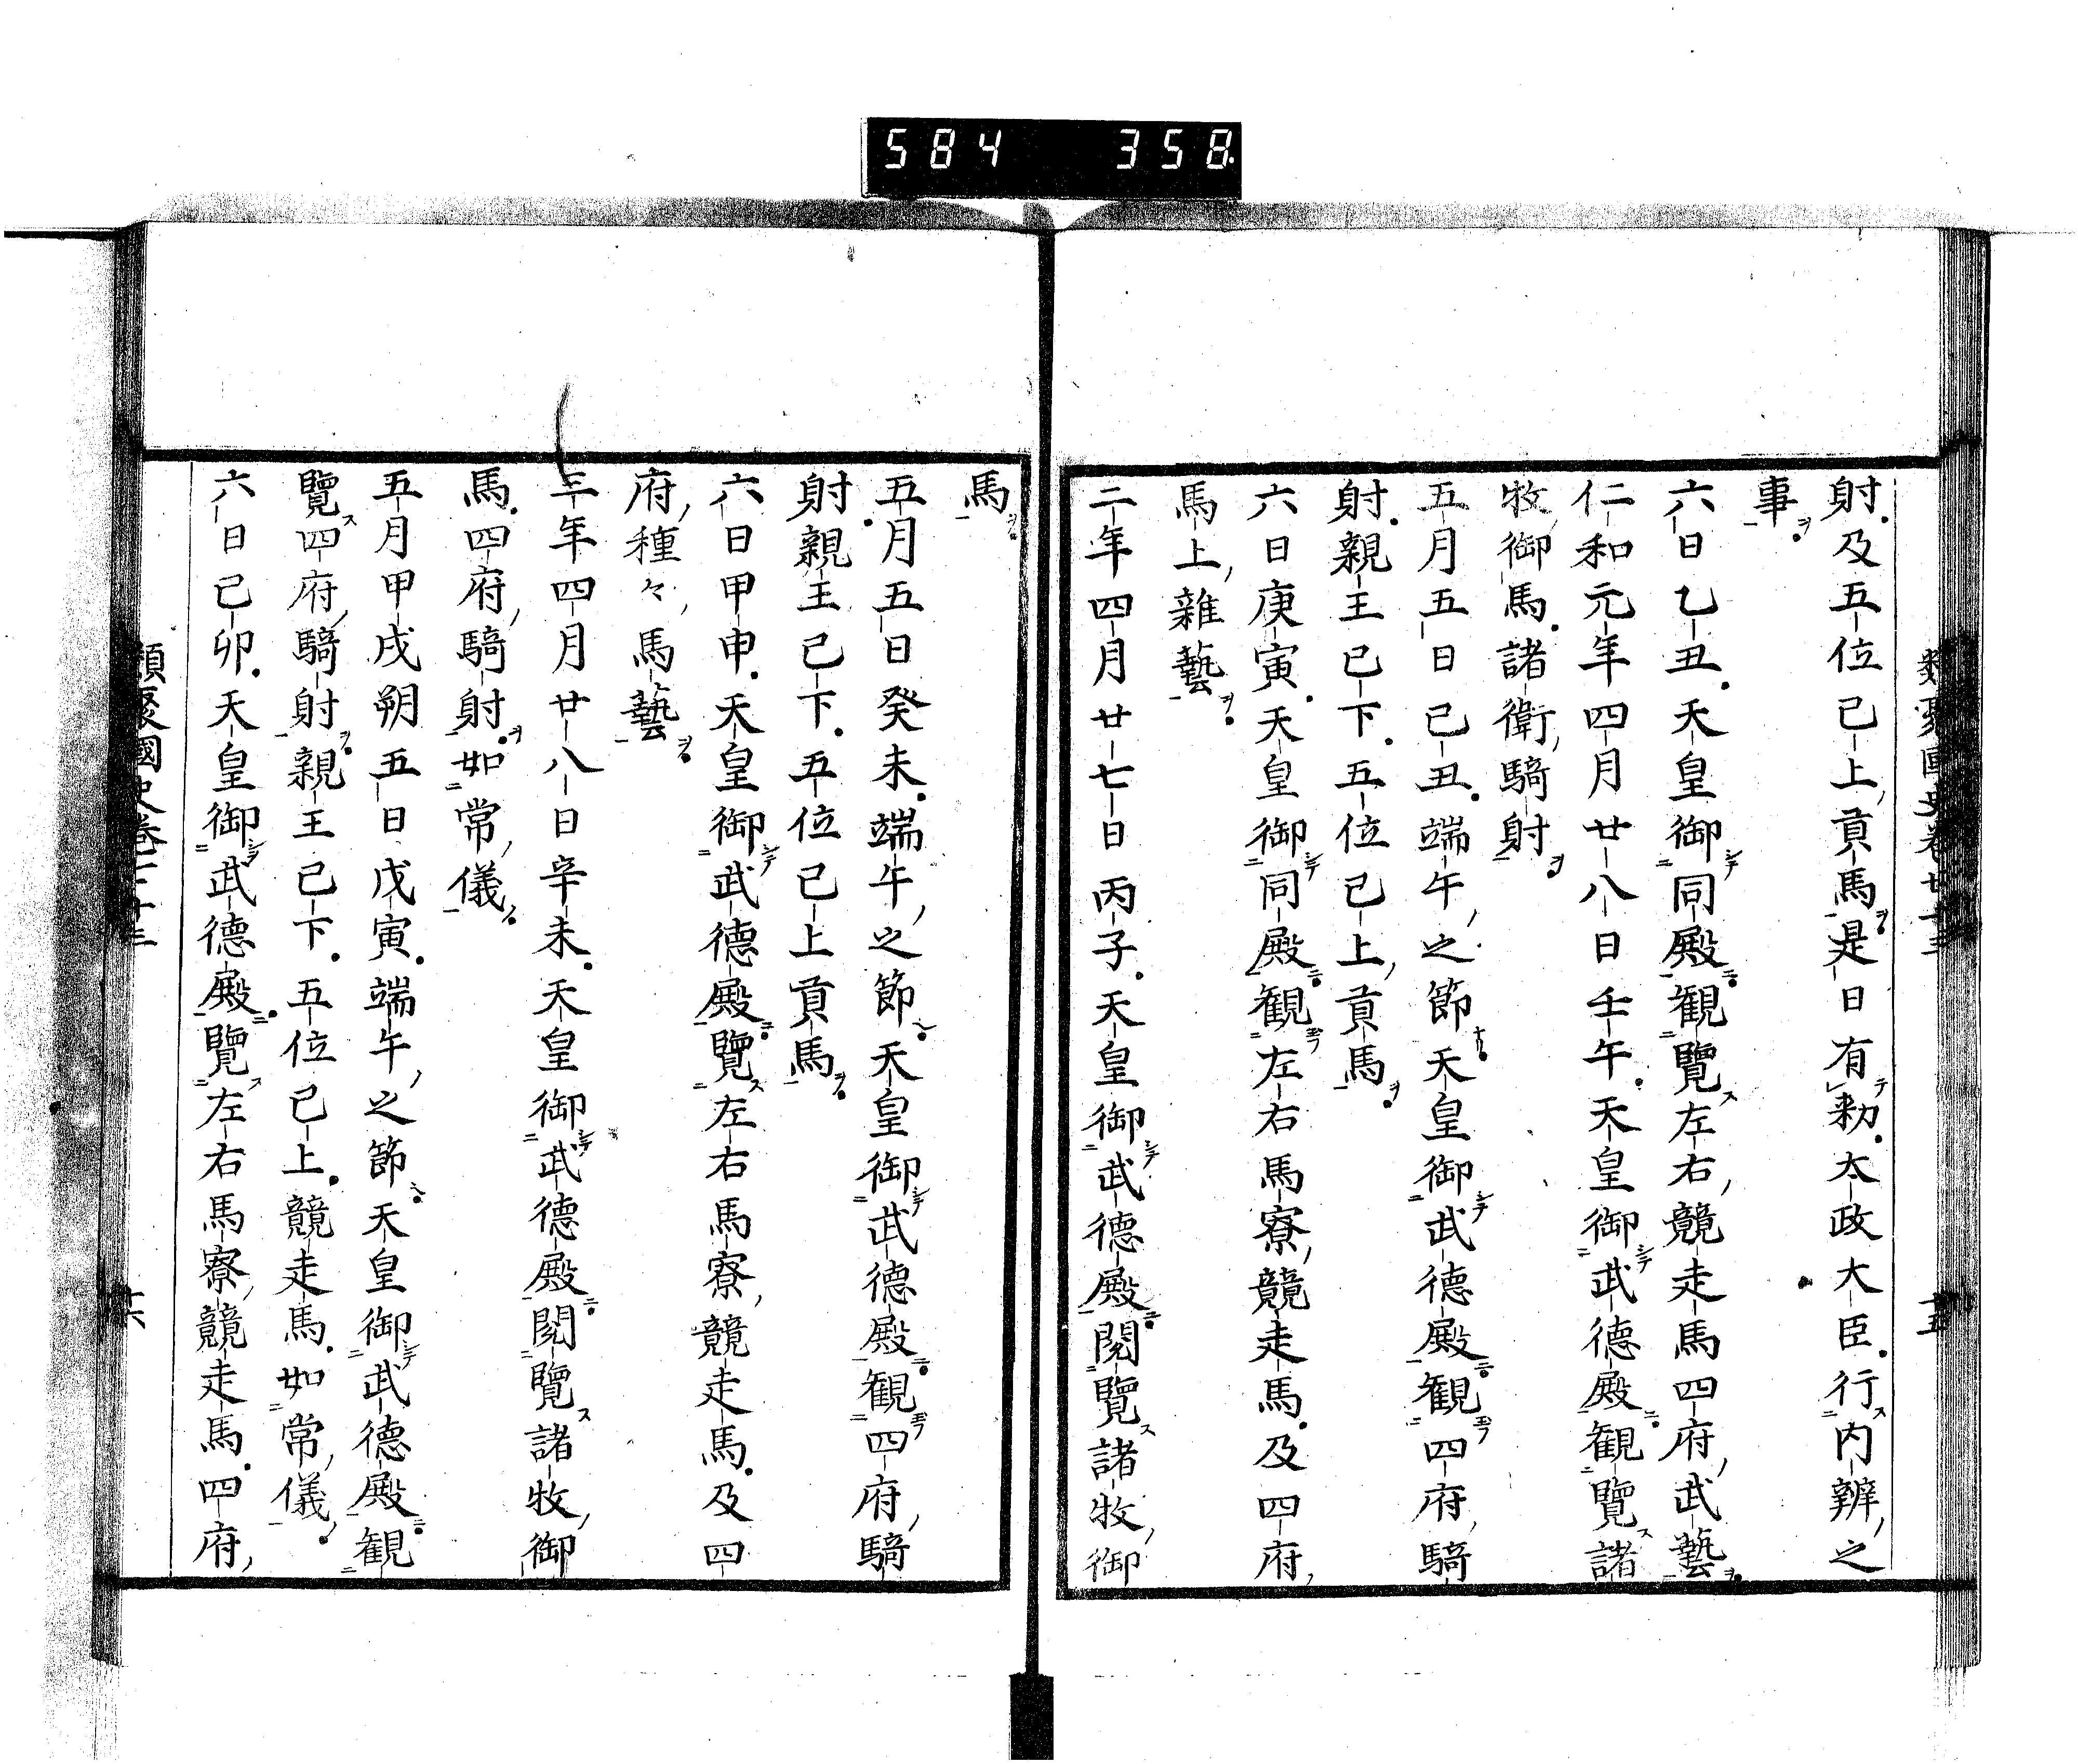 584 358
射及五位已上貢馬是日有勅太政大臣行内辨之
事
六日乙丑天皇御同殿観覽左右競走馬四府武藝
仁和元年四月廿八日壬午天皇御武德殿観覽諸
牧御馬諸衛騎射
五月五日己丑端午之節天皇御武德殿観四府騎
射親王已下五位已上貢馬
六日庚寅天皇御同殿観左右馬寮競走馬及四府
馬上雜藝
二年四月廿七日丙子天皇御武德殿閲覽諸牧御
馬
五月五日癸未端午之節天皇御武德殿観四府騎
射親王已下五位已上貢馬
六日甲申天皇御武德殿覽左右馬寮競走馬及四
府種々馬藝
三年四月廿八日辛未天皇御武德殿閲覽諸牧御
馬四府騎射如常儀
五月甲戌朔五日戊寅端午之節天皇御武德殿観
覽四府騎射親王已下五位已上競走馬如常儀
六日己卯天皇御武德殿覽左右馬寮競走馬四府